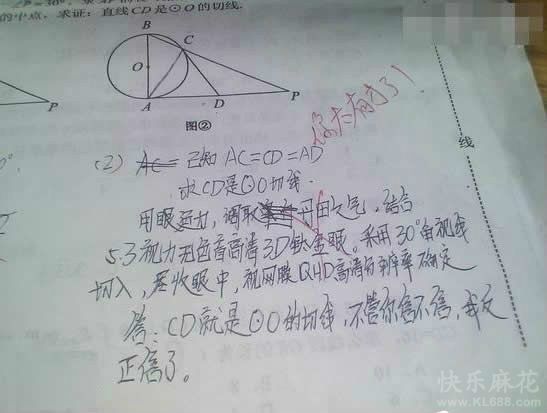 ∠P=30°,
的中点，求证：直线CD是⊙O的切线.
B
C
O
A
D
P
P
图②
你太有才了！
(2) AC= 已知 AC=CD=AD
求CD是⊙O切线.
用眼运力，调取丹田之气，结合
5.3视力无色盲高清3D钛金眼。采用30°角视线
切入，尽收眼中，视网膜QHD高清分辨率确定
答：CD就是⊙O的切线，不管你信不信，我反
正信了。
线
快乐麻花
www.KL688.com